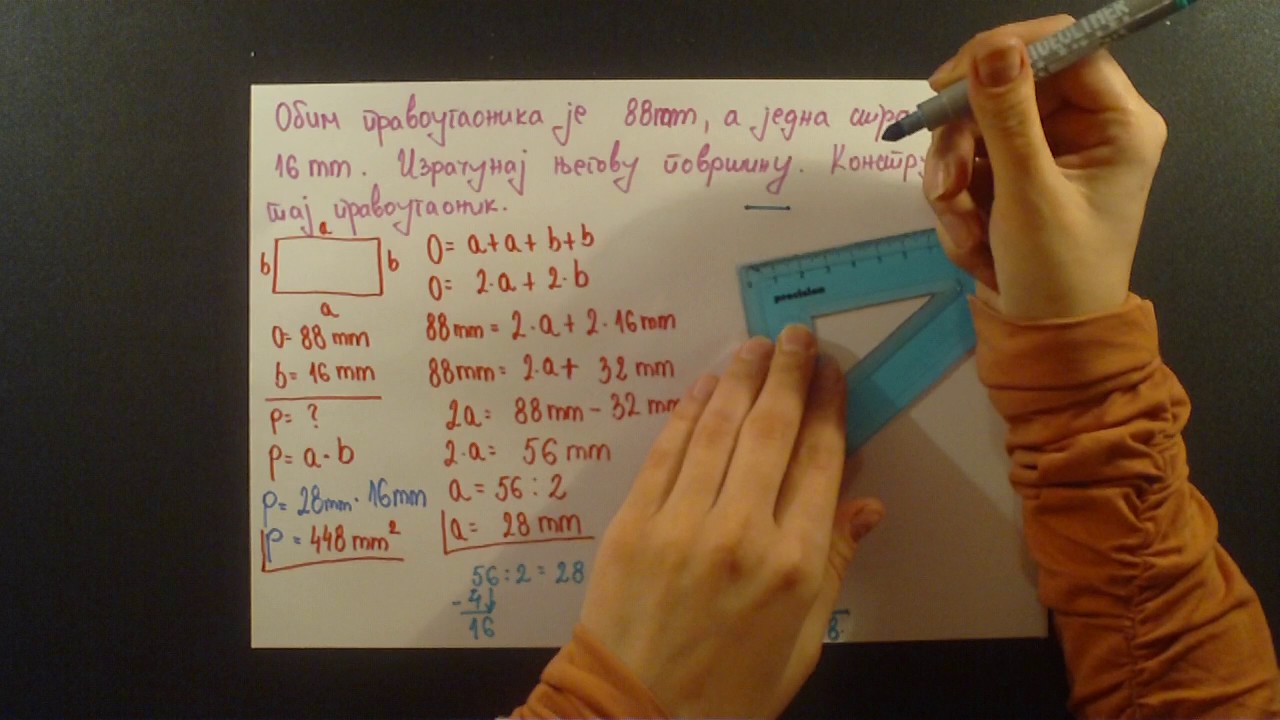 Обим правоугаоника је 88mm, а једна
16 mm. Израчунај његову површину.
тај правоугаоник.
a
b b
a
O= 88 mm
b= 16 mm
P= ?
P= a·b
P= 28mm·16mm
P= 448 mm²
O= a+a+b+b
O= 2·a+2·b
88mm = 2·a+2·16mm
88mm= 2·a+ 32 mm
2a= 88mm-32 mm
2·a= 56 mm
a=56:2
a= 28 mm
56:2=28
-4
16
precision
8